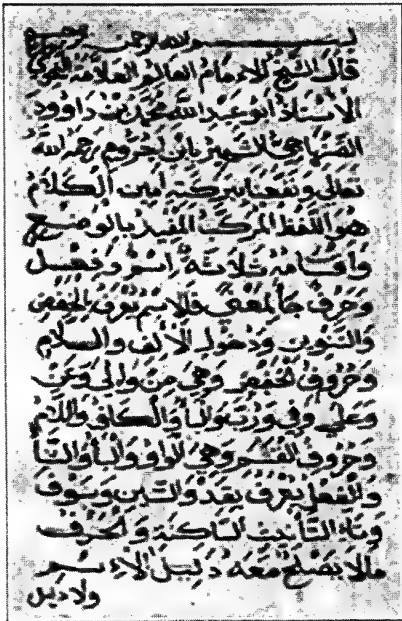 بسم الله الرحمن الرحيم
قال الشيخ الامام العالم العلامة النحوي
الأستاذ أبو عبد الله محمد بن داوود
الصنهاجي الشهير بابن اجروم رحمه الله
تعالى ونفعنا ببركته امين الكلام
هو اللفظ المركب المفيد بالوضع
وأقسامه ثلاثة إسم وفعل
وحرف جاء لمعنى فالاسم يعرف بالخفض
والتنوين ودخول الألف واللام
وحروف الخفض وهي من والى وعن
وعلى وفي ورب والباء والكاف واللام
وحروف القسم وهي الواو والباء والتاء
والفعل يعرف بقد والسين وسوف
وتاء التأنيث الساكنة والحرف
ما لا يصلح معه دليل الاسم
ولا دليل